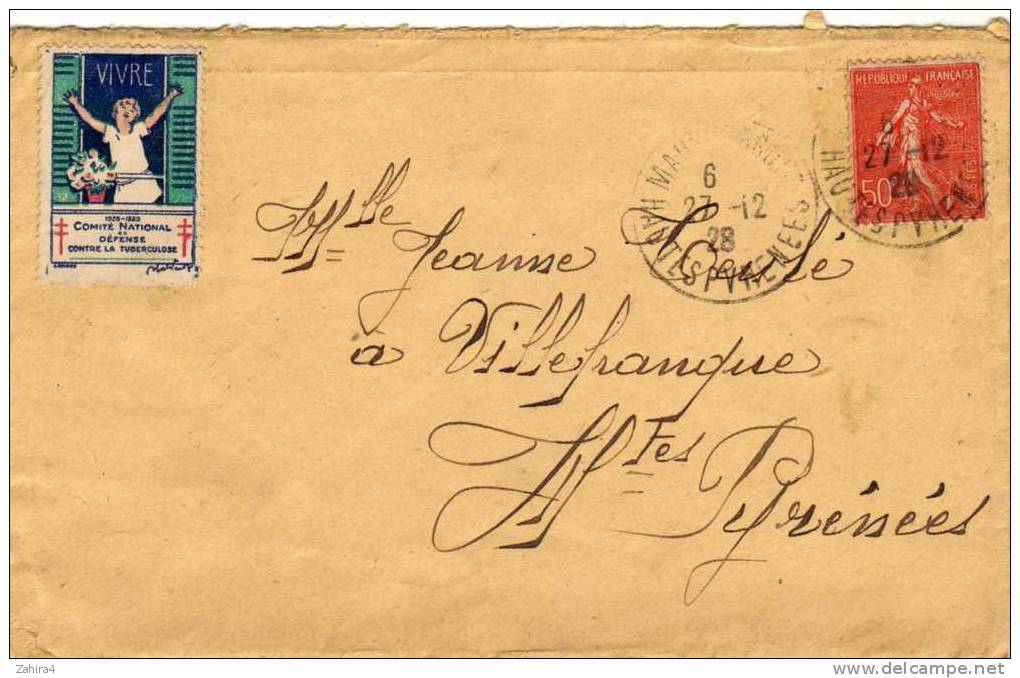 VIVRE
1928-1929
COMITÉ NATIONAL
DE
DÉFENSE
CONTRE LA TUBERCULOSE
RÉPUBLIQUE FRANÇAISE
50
6
27 -12
28
HAUTES PYRENEES
6
27 -12
28
Mlle Jeanne
à Villefranque
Htes
Pyrénées
Zahira4
http://www.delcampe.net